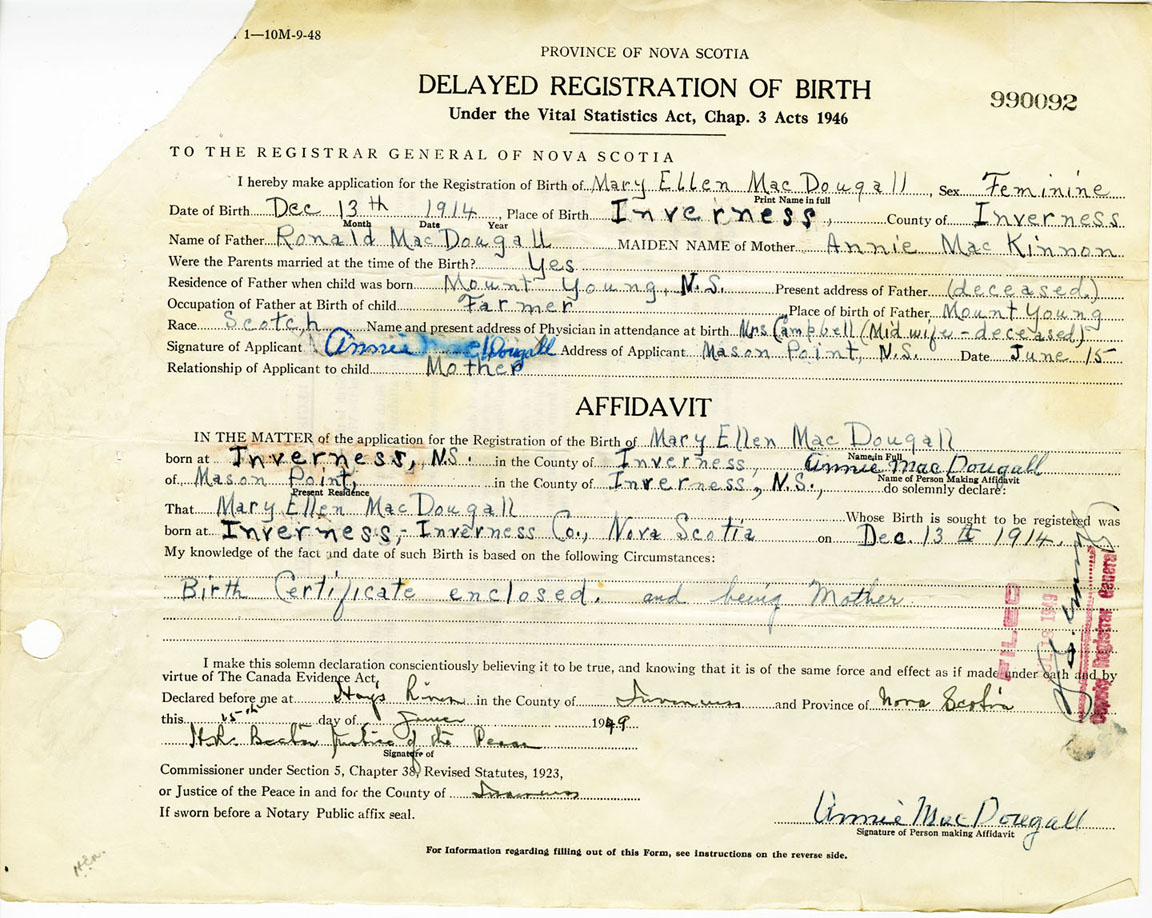 1—10M-9-48
PROVINCE OF NOVA SCOTIA
DELAYED REGISTRATION OF BIRTH
990092
Under the Vital Statistics Act, Chap. 3 Acts 1946
TO THE REGISTRAR GENERAL OF NOVA SCOTIA
I hereby make application for the Registration of Birth of Mary Ellen Mac Dougall, Sex Feminine
Print Name in full
Date of Birth Dec 13th 1914, Place of Birth Inverness, County of Inverness
Month Date Year
Name of Father Ronald MacDougall MAIDEN NAME of Mother Annie Mac Kinnon
Were the Parents married at the time of the Birth? Yes
Residence of Father when child was born Mount Young, N.S. Present address of Father (deceased)
Occupation of Father at Birth of child Farmer Place of birth of Father Mount Young
Race Scotch Name and present address of Physician in attendance at birth Mrs Campbell (Midwife - deceased)
Signature of Applicant Annie MacDougall Address of Applicant Mason Point, N.S. Date June 15
Relationship of Applicant to child Mother
AFFIDAVIT
IN THE MATTER of the application for the Registration of the Birth of Mary Ellen Mac Dougall
Name in Full
born at Inverness, N.S. in the County of Inverness, Annie MacDougall
Name of Person Making Affidavit
of Mason Point, in the County of Inverness, N.S., do solemnly declare:
Present Residence
That Mary Ellen MacDougall Whose Birth is sought to be registered was
born at Inverness, Inverness Co., Nova Scotia on Dec. 13th 1914.
My knowledge of the fact and date of such Birth is based on the following Circumstances:
Birth Certificate enclosed. and being Mother
FILED
18 1949
Deputy Registrar General
I make this solemn declaration conscientiously believing it to be true, and knowing that it is of the same force and effect as if made under oath and by
virtue of The Canada Evidence Act,
Declared before me at Hays River in the County of Inverness and Province of Nova Scotia
this 15th day of June 1949
Justice of the Peace
Signature of
Commissioner under Section 5, Chapter 38, Revised Statutes, 1923,
or Justice of the Peace in and for the County of Inverness
If sworn before a Notary Public affix seal.
Annie MacDougall
Signature of Person making Affidavit
For Information regarding filling out of this Form, see instructions on the reverse side.